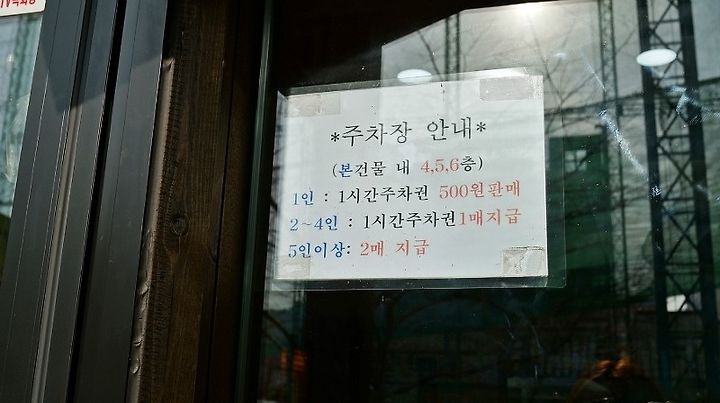 *주차장 안내*
(본건물 내 4,5,6층)
1인 : 1시간주차권 500원판매
2~4인 : 1시간주차권1매지급
5인이상: 2매 지급